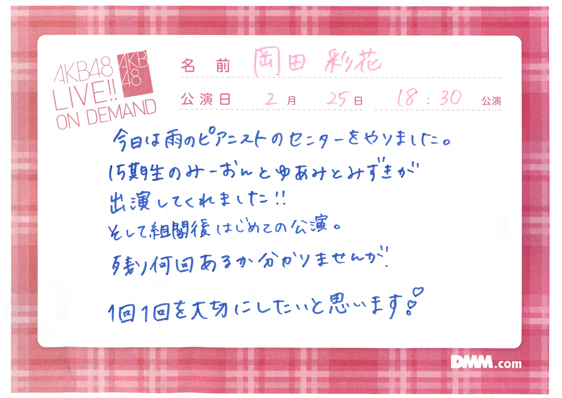 AKB48
LIVE!!
ON DEMAND
AKB
48
名 前 岡田 彩花
公演日 2月 25日 18:30 公演
今日は雨のピアニストのセンターをやりました。
15期生のみーおんとゆあみとみずきが
出演してくれました!!
そして組閣後はじめての公演。
残り何回あるか分かりませんが、
1回1回を大切にしたいと思います!
DMM.com